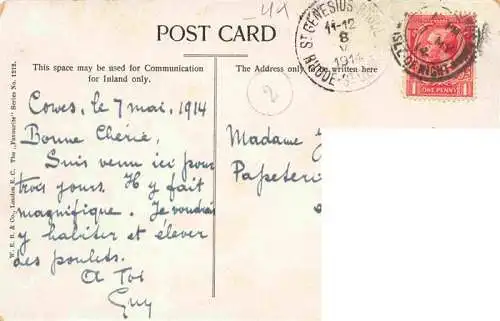 -41
POST CARD
This space may be used for Communication
for Inland only.
The Address only to be written here
ST GENESIUS-RODE
11-12
8
V
1914
RHODE-ST
ISLE OF WIGHT
ONE PENNY
1 1
2
W. E. B. & Co., London E. C. The "Favourite" Series No.
Cowes, le 7 mai, 1914
Bonne Chérie,
Suis venu ici pour
trois jours. Il y fait
magnifique. Je voudrais
y habiter et élever
des poulets.
A Toi
Guy
Madame
Papeteri